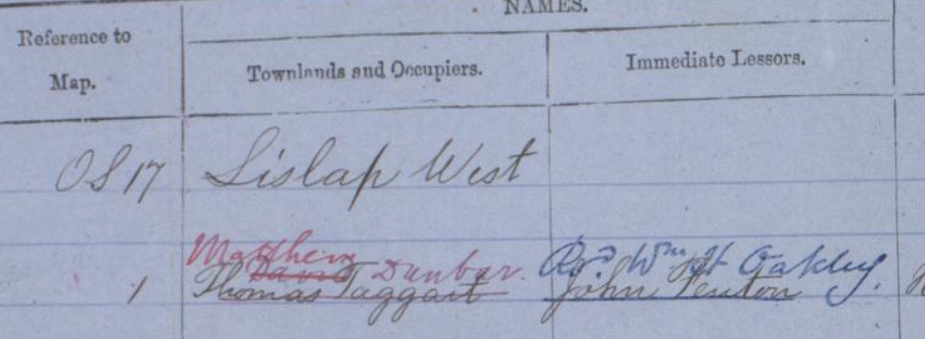 NAMES.
Reference to Map.
Townlands and Occupiers.
Immediate Lessors.
OS 17 Lislap West
Matthew
David Dunbar. Wm Oakley.
1 Thomas Taggart John Fenton